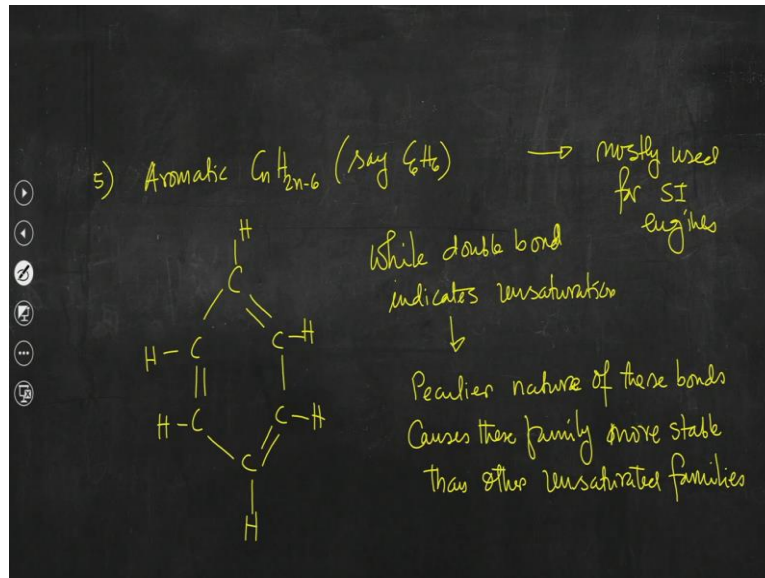 5) Aromatic CnH2n-6 (say C6H6) → mostly used
for SI
engines
H
C
H-C
C-H
H-C
C-H
C
H
While double bond
indicates unsaturation
↓
Peculier nature of these bonds
Causes these family more stable
than other unsaturated families